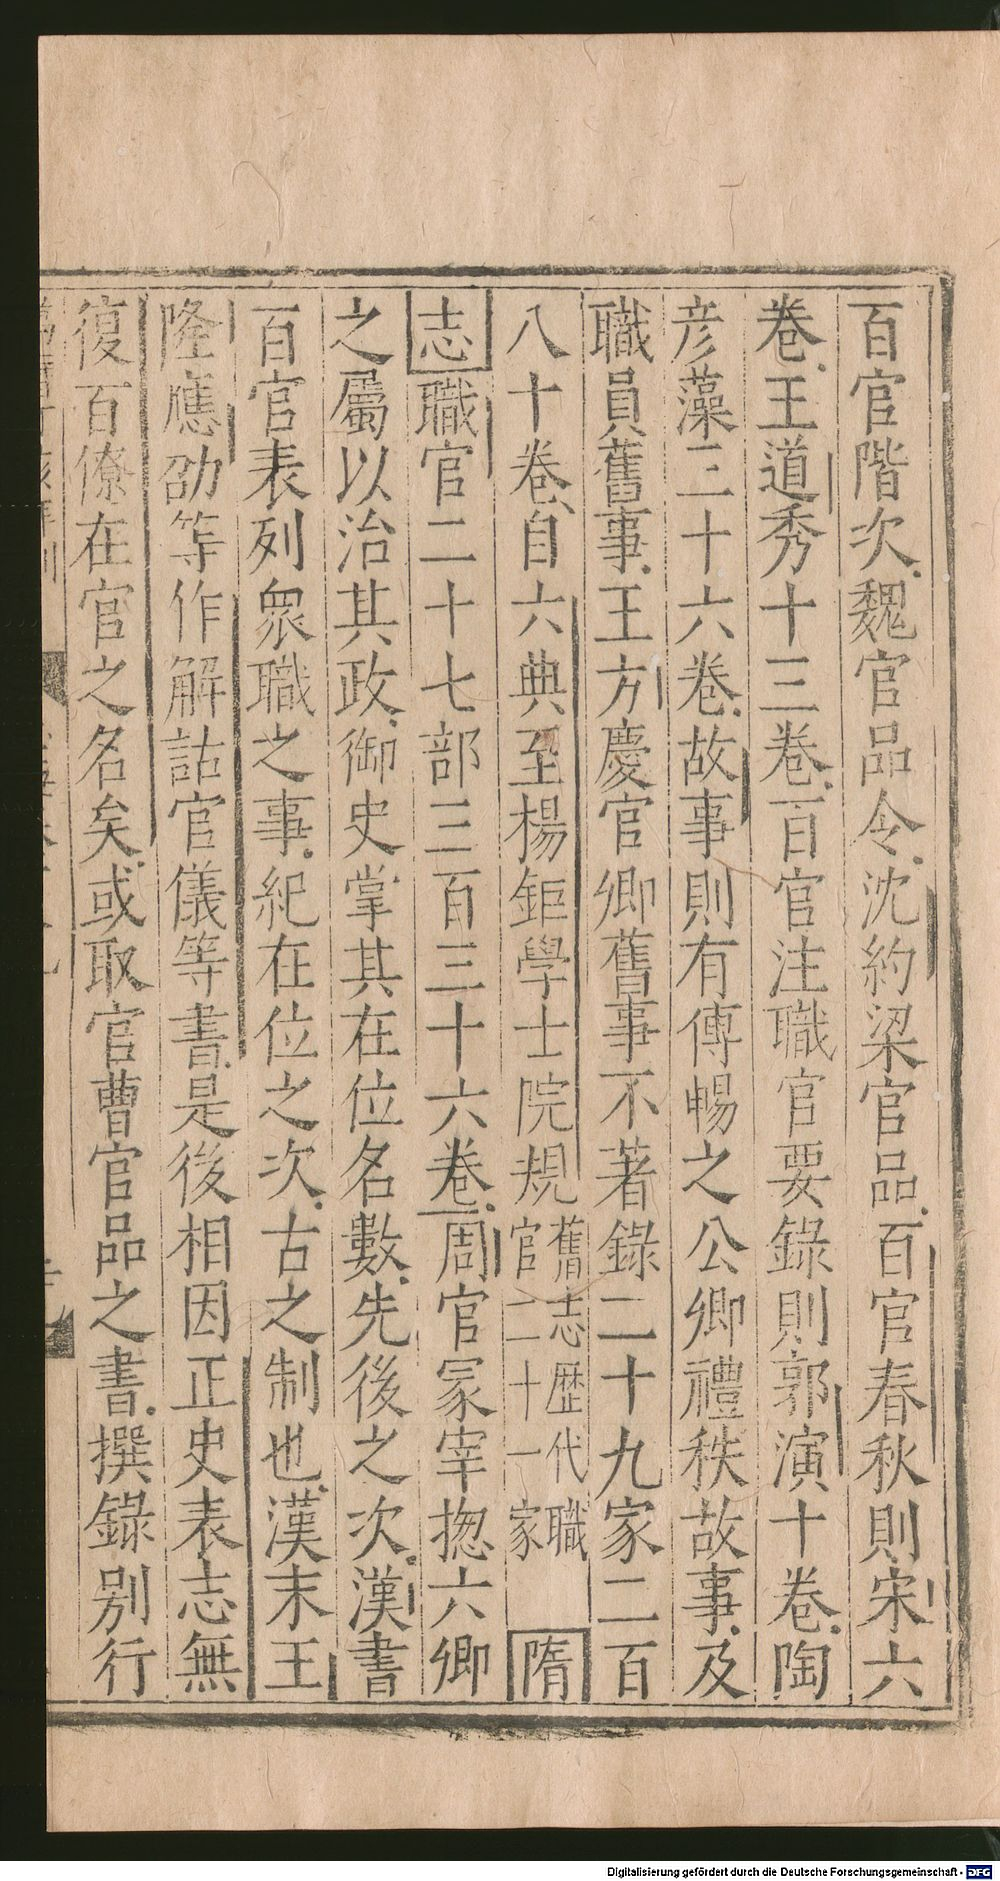 百官階次魏官品令沈約梁官品百官春秋則宋六
卷王道秀十三卷百官注職官要錄則郭演十卷陶
彦藻三十六卷故事則有傅暢之公卿禮秩故事及
職員舊事王方慶官卿舊事不著錄二十九家二百
八十卷自六典至楊鉅學士院規舊志歷代職官二十一家隋
志職官二十七部三百三十六卷周官冢宰揔六卿
之屬以治其政御史掌其在位名數先後之次漢書
百官表列衆職之事紀在位之次古之制也漢末王
隆應劭等作解詁官儀等書是後相因正史表志無
復百僚在官之名矣或取官曹官品之書撰錄別行
Digitalisierung gefördert durch die Deutsche Forschungsgemeinschaft - DFG